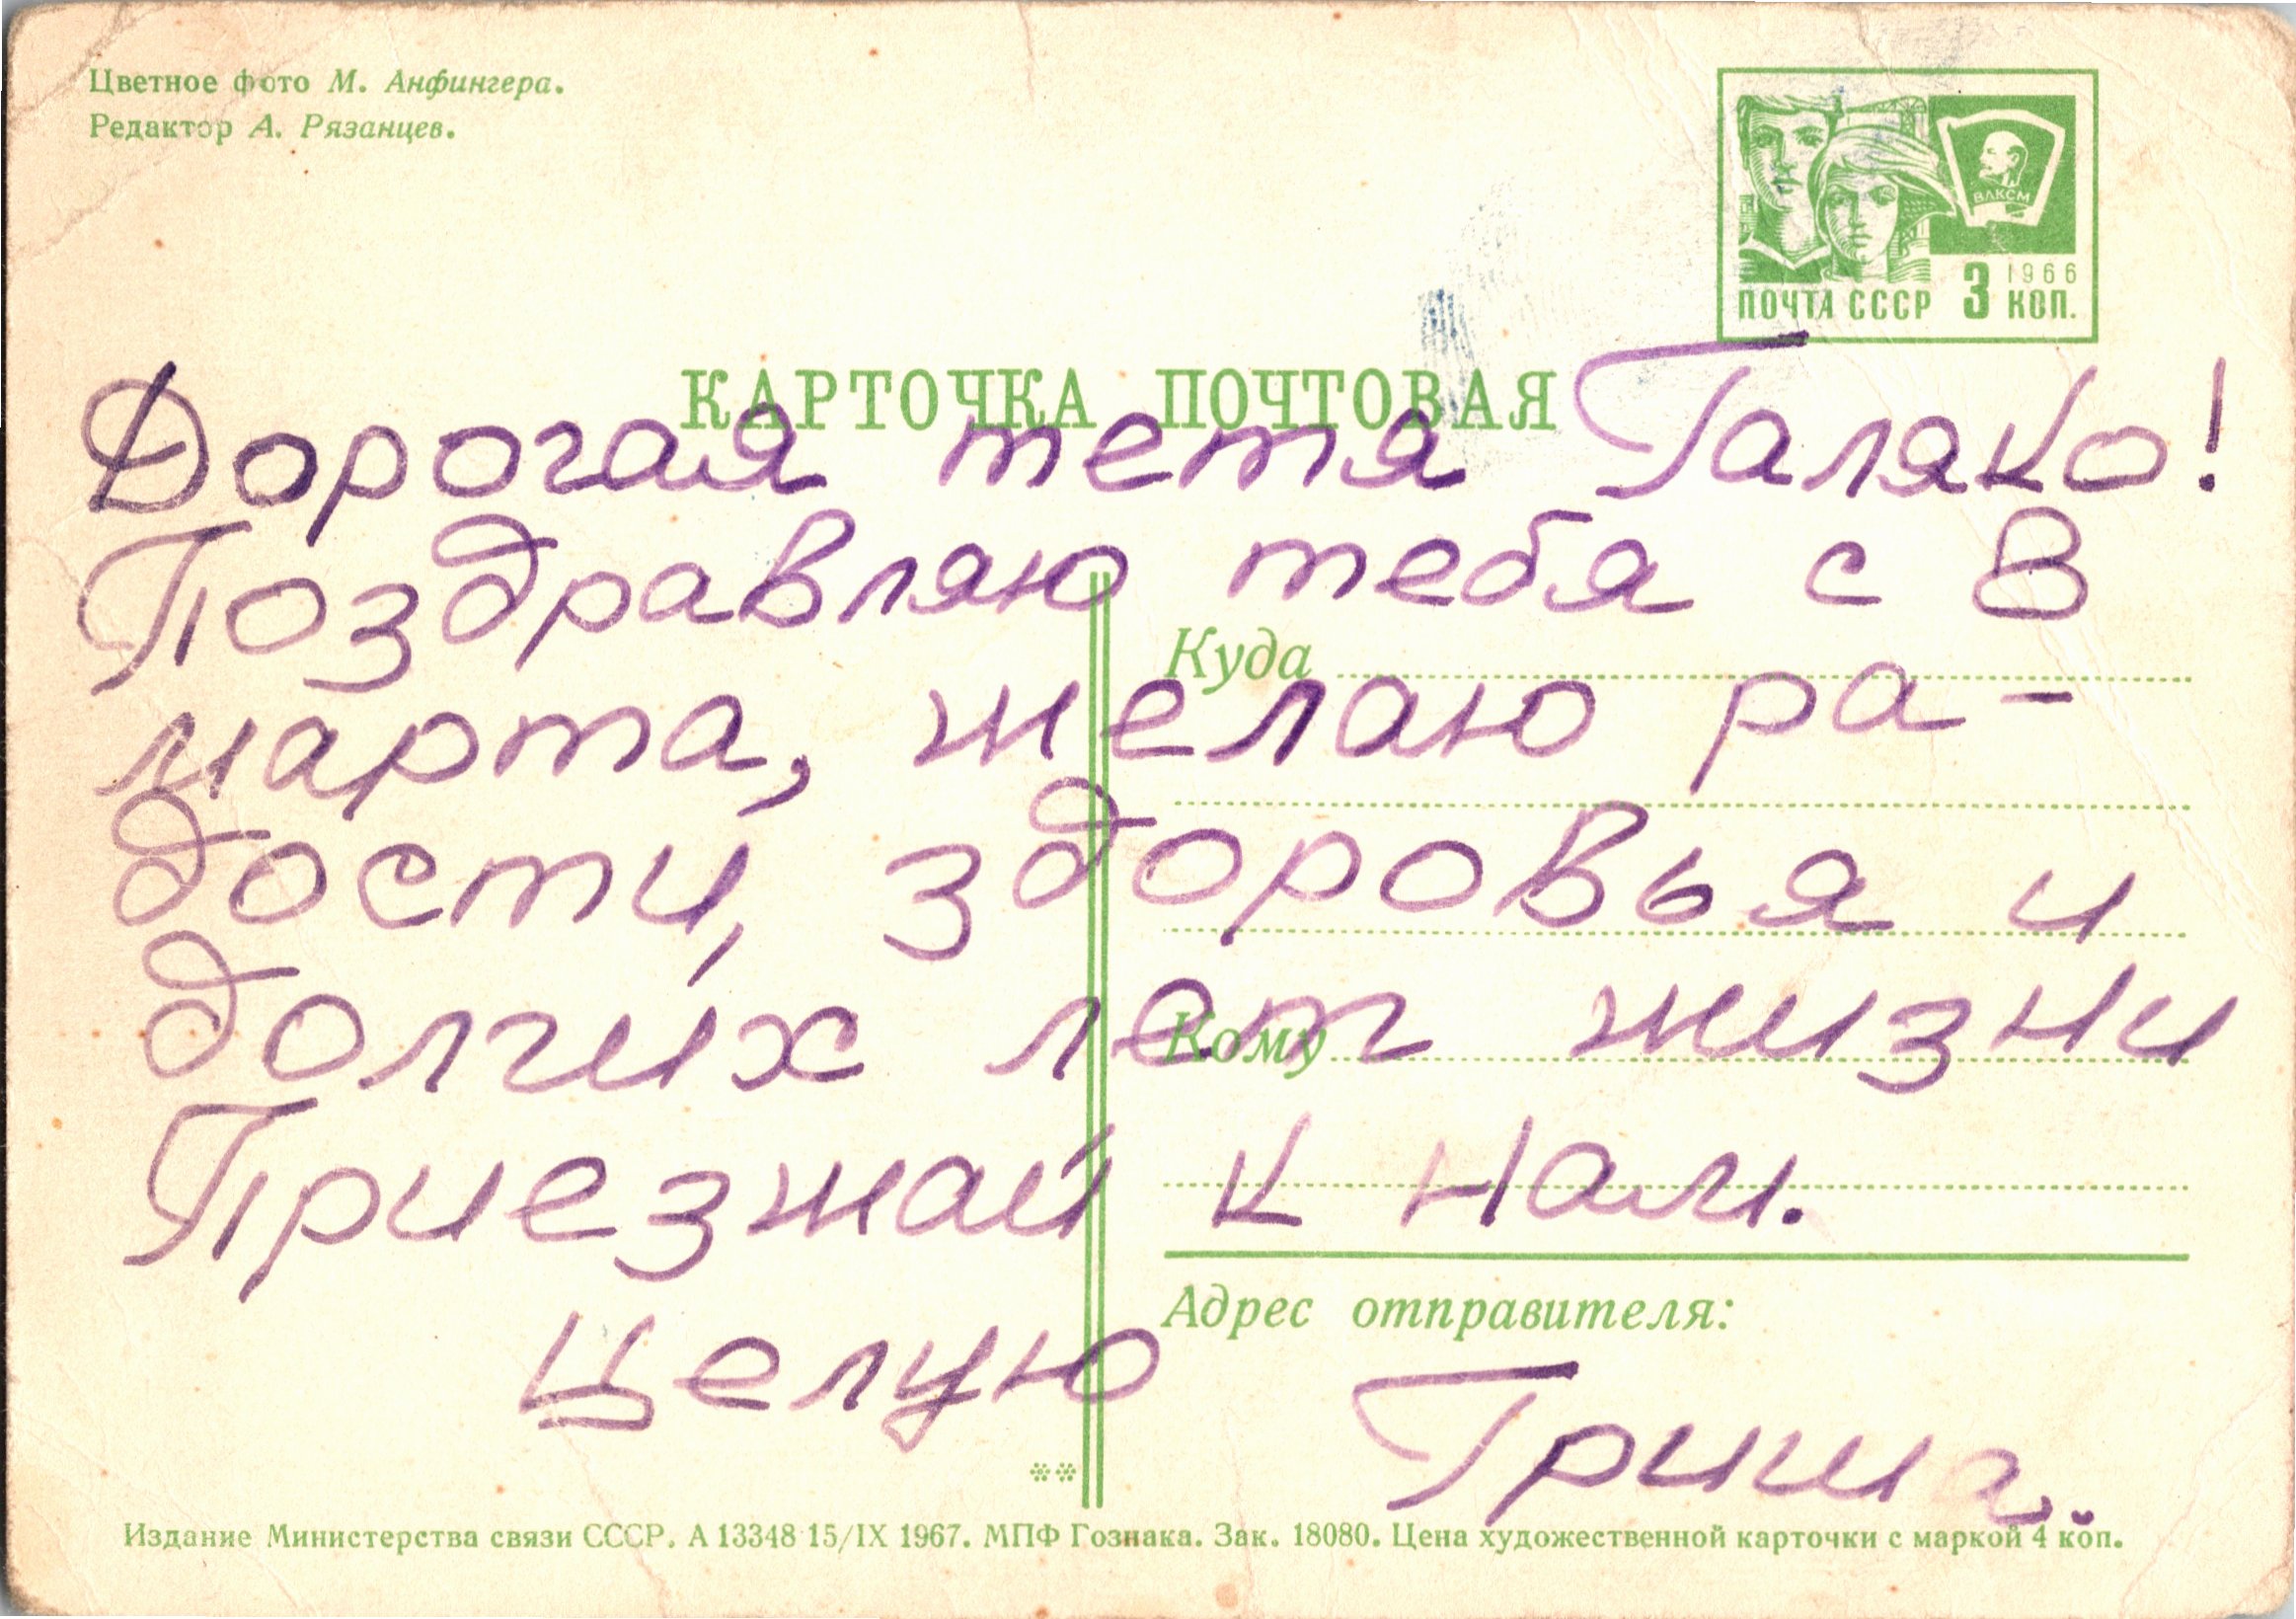 Цветное фото М. Анфингера.
Редактор А. Рязанцев.
ВЛКСМ
1966
ПОЧТА СССР 3 КОП.
КАРТОЧКА ПОЧТОВАЯ
Дорогая тетя Галяко!
Поздравляю тебя с 8
марта, желаю ра-
дости, здоровья и
долгих лет жизни
Приезжай к нам.
Целую
Гриша.
Куда
Кому
Адрес отправителя:
Издание Министерства связи СССР. А 13348 15/IX 1967. МПФ Гознака. Зак. 18080. Цена художественной карточки с маркой 4 коп.